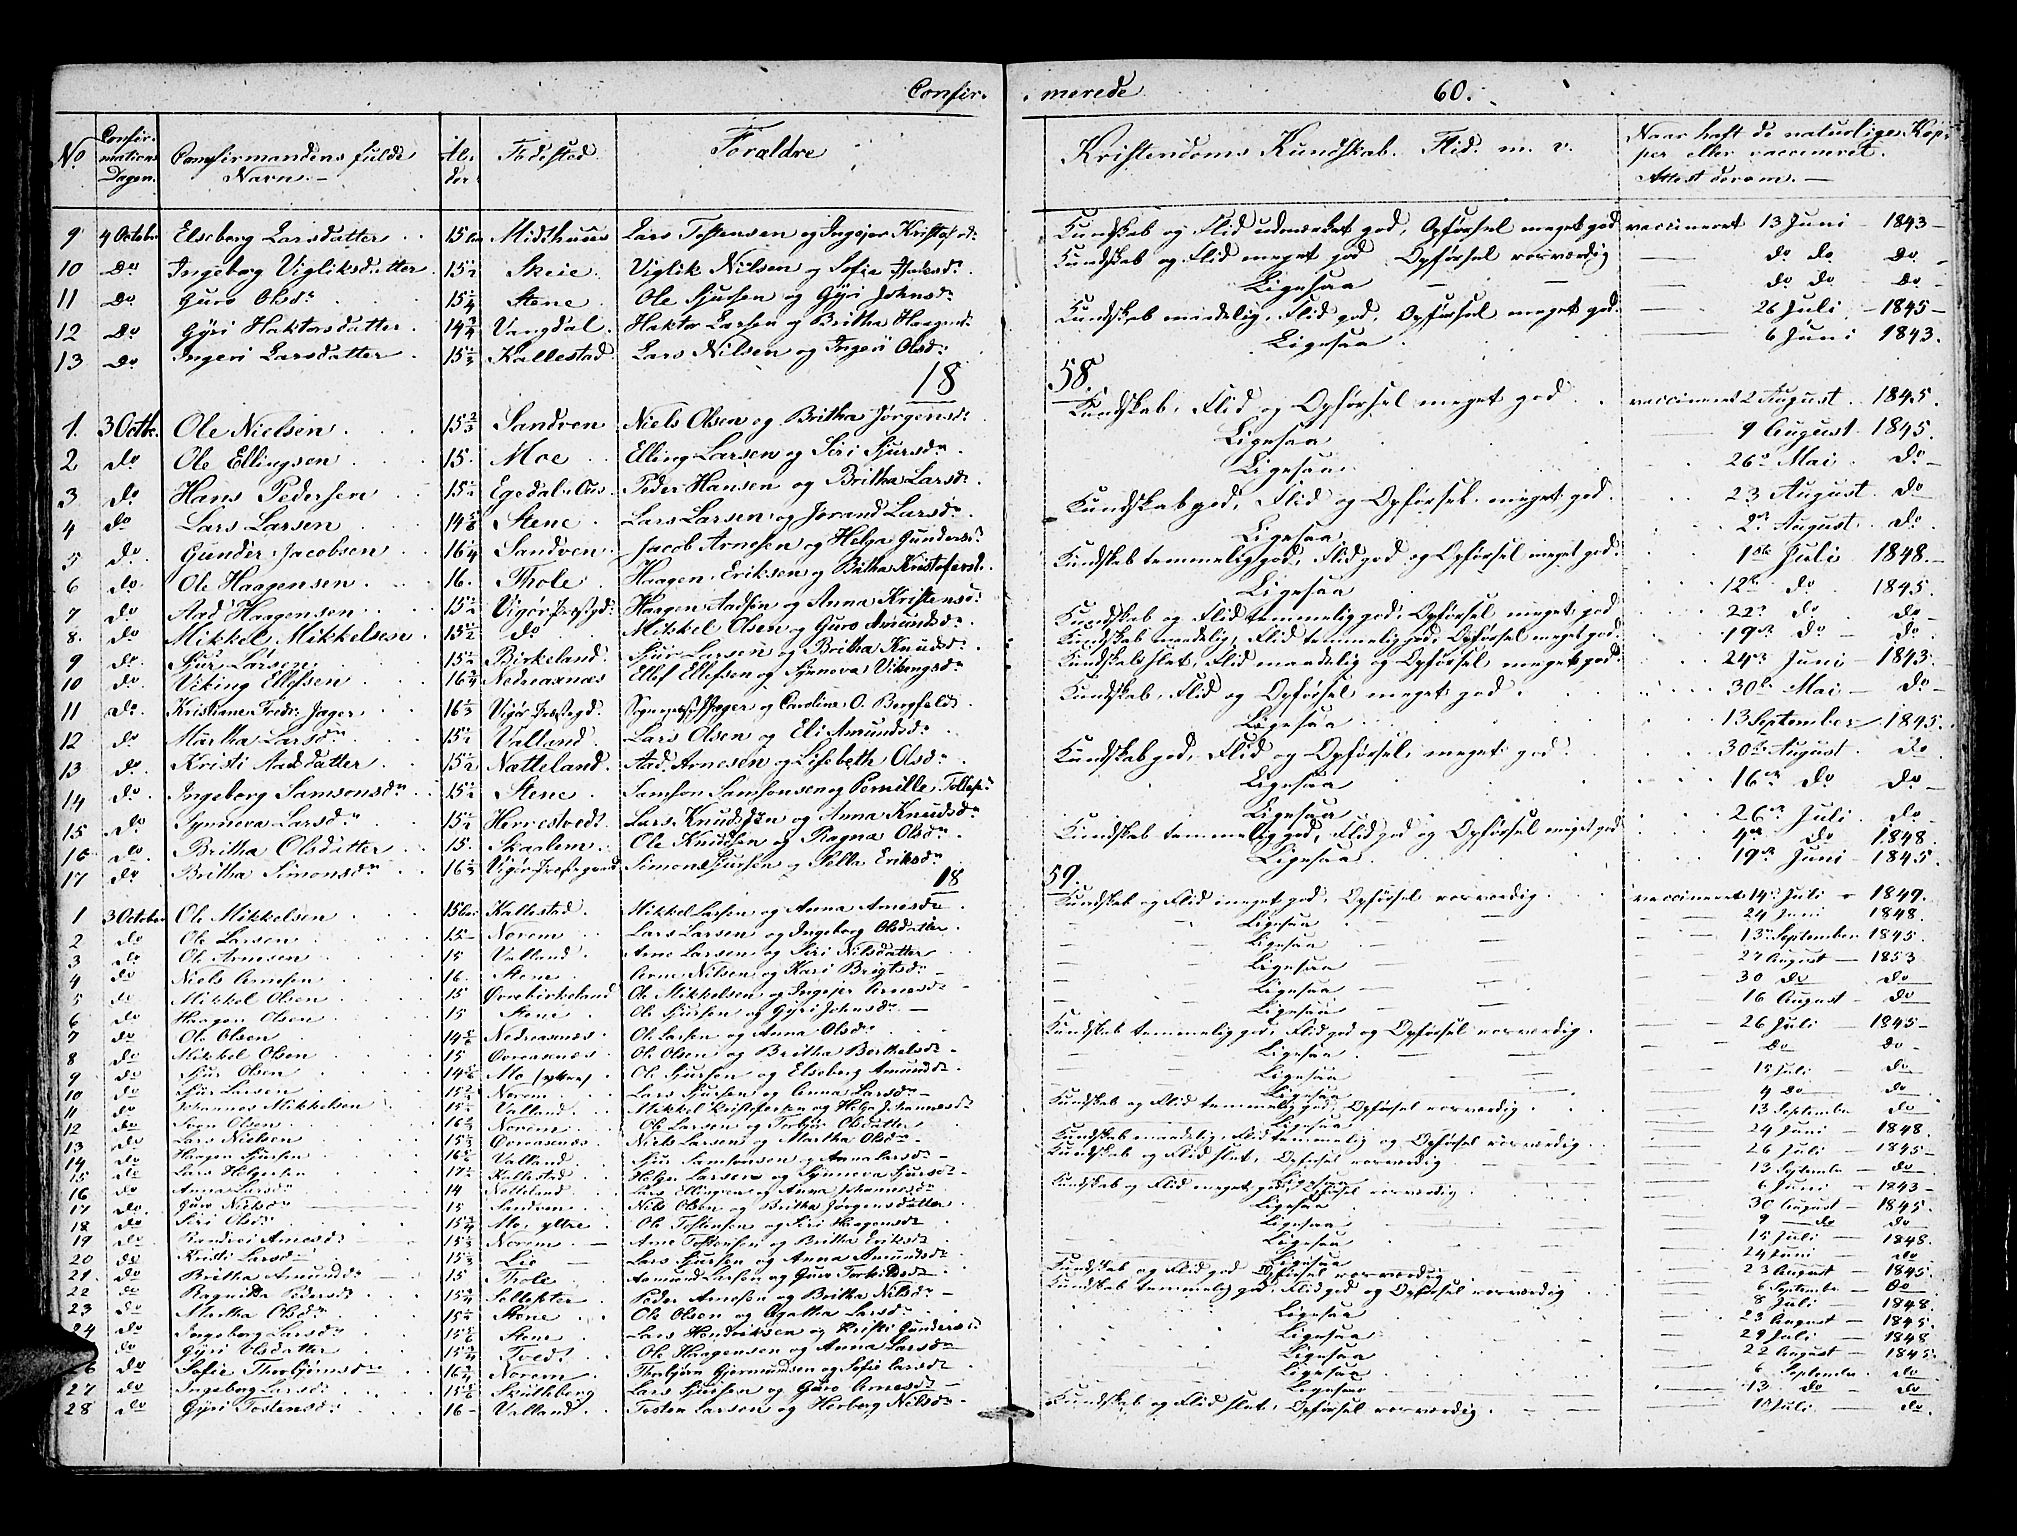 Confir-merede 60.
No Confirmations Dagen. Confirmandens fulde Navn. Alder Fødested Forældre Kristendoms Kundskab. Flid. m. v. Naar haft de naturlige Kopper eller vaccineret. Attest derom.
9 4 Octobr Elseberg Larsdatter 15 Midthuus Lars Tostensen og Ingejer Kundskab og Flid udmærket god, Opførsel meget god vaccineret 13 Juni 1843
10 Do Ingeborg Vigliksdatter 15½ Skeie Viglik Nilsen og Sofie Kundskab og Flid meget god Opførsel rosværdig do do Do
11 Do Guro Olsdr 15¼ Stene Ole Sjursen og Gyri Johnsdr Ligesaa do do Do
12 Do Gyri Haktorsdatter 14¾ Vangdal Haktor Larsen og Britha Kundskab maadelig, Flid god, Opførsel meget god. 26 Juli 1845
13 Do Ingeri Larsdatter 15⅓ Kallestad Lars Nilsen og Ingeri Olsdr Ligesaa 6 Juni 1843.
18 58.
1. 3 Octbr. Ole Nielsen 15⅔ Sandven Niels Olsen og Britha Jørgensdr Kundskab, Flid og Opførsel meget god vaccineret 2 August 1845.
2 do Ole Ellingsen 15. Moe Elling Larsen og Siri Sjursdr Ligesaa 9 August 1845.
3 do Hans Pedersen 15½ Peder Hansen og Britha Larsdr Ligesaa 26 Mai do
4 do Lars Larsen 14⅚ Stene Lars Larsen og Jorand Larsdr Kundskab god, Flid og Opførsel meget god. 23 August do
5 do Gunder Jacobsen 16¼ Sandven Jacob Arnesen og Helga Gundersdr Ligesaa 2 August do
6 do Ole Haagensen 16. Thole Haagen Eriksen og Britha Kristofersd. Kundskab temmelig god, Flid god og Opførsel meget god. 1ste Juli 1848
7 do Aad Haagensen 15½ Vigør Præstegd. Haagen Aadsen og Anna Kristensdr Ligesaa 12te do 1845
8. do Mikkel Mikkelsen 15½ do Mikkel Olsen og Guro Amundsdr Kundskab og Flid temmelig god, Opførsel meget god 22 do do
9 do Sjur Larsen 15½ Birkeland Sjur Larsen og Britha Knudsdr Kundskab maadelig, Flid temmelig god, Opførsel meget god. 19de do do
10 do Viking Ellefsen 16¾ Nedreaxnæs Ellef Ellefsen og Synneva Vikingsdr Kundskab slet, Flid maadelig og Opførsel meget god. 24de Juni 1843
11 do Kristiane Fredr. Jager 16⅓ Vigør Præstegd. og Caroline O. Kundskab, Flid og Opførsel meget god. 30te Mai do
12 do Martha Larsdr 15½ Valland Lars Olsen og Eli Amundsdr Ligesaa 13 September 1845.
13 do Kristi Aadsdatter 15½ Natteland Aad Arnesen og Lisebeth Olsdr Kundskab god, Flid og Opførsel meget god. 30te August do
14 do Ingeborg Samsonsdr 15½ Stene Samson Samsonsen og Pernille Ligesaa 16de do do
15 do Synneva Larsdr 15½ Herrestvedt Lars Knudsen og Anna Knudsdr Ligesaa 26de Juli do
16 do Britha Olsdatter 15. Skaalem Ole Knudsen og Ragna Olsdr Kundskab temmelig god, Flid god og Opførsel meget god 4de do 1848
17 do Britha Simonsdr 16⅓ Vigør Præstegaard Simon Sjursen og Pella Eriksdr Ligesaa 19de Juni 1845
18 59.
1 3 October Ole Mikkelsen 15 Kallestad Mikkel Larsen og Anna Arnesdr Kundskab og Flid meget god, Opførsel rosværdig vaccineret 14 Juli 1849.
2 do Ole Larsen 15 Norem Lars Larsen og Ingeborg Olsdatter Ligesaa 24 Juni 1848.
3 do Ole Arnesen 15 Valland Arne Larsen og Siri Nilsdatter Ligesaa 13 September 1845.
4 do Niels Arnesen 16. Stene Arne Nilsen og Kari Brigtsdr Ligesaa 27 August 1853
5 do Mikkel Olsen 15 Øvrebirkeland Ole Mikkelsen og Ingejer Arnesdr Ligesaa 30 do do
6 do Haagen Olsen 15 Stene Ole Sjursen og Gyri Johnsdr Ligesaa 16 August do
7 do Ole Olsen 14⅚ Nedreaxnæs Ole Larsen og Anna Olsdr Kundskab temmelig god, Flid god og Opførsel rosværdig. 26 Juli 1845
8 do Mikkel Olsen 15 Øvreaxnæs Ole Olsen og Britha Barthelsdr Ligesaa do do
9 do Sjur Olsen 14⅚ Mo (yttre) Ole Sjursen og Elseberg Amundsdr Ligesaa 15 Juli do
10 do Sjur Larsen 15¾ Norem Lars Sjursen og Anna Larsdr Ligesaa 4 do do
11 do Johannes Mikkelsen 15½ Valland Mikkel Kristofersen og Helga Johannesdr Kundskab og Flid temmelig god, Opførsel rosværdig 13 September do
12 do Sven Olsen 16½ Norem Ole Larsen og Torbjør Olsdatter Ligesaa 24 Juni 1848.
13 do Lars Nielsen 15½ Øvreaxnæs Niels Larsen og Martha Olsdr Kundskab maadelig, Flid temmelig og Opførsel rosværdig. 26 Juli 1845
14 do Haagen Sjursen 16½ Valland Sjur Samsonsen og Anna Larsdr Kundskab og Flid slet, Opførsel rosværdig 13 September do
15 do Lars Helgesen 17½ Kallestad Helge Larsen og Synneva Sjursdr Ligesaa 6 Juni 1843
16 do Anna Larsdr 14 Natteland Lars Ellingsen og Anna Johannesdr Kundskab og Flid meget god, Opførsel rosværdig. 30 August 1845.
17 do Guro Nielsdr 15 Sandven Nils Olsen og Britha Jørgensdatter Ligesaa 9 do do
18 do Siri Olsdr 15¾ Mo, ytre Ole Tostensen og Siri Haagensdr Ligesaa 15 Juli 1848.
19 do Randvei Arnesdr 15⅓ Norem Arne Tostensen og Britha Eriksdr Ligesaa 24 Juni do
20 do Kristi Larsdr 15⅓ Lie Lars Sjursen og Anna Amundsdr Ligesaa 23 August 1845
21 do Britha Amundsdr 15 Thole Amund Larsen og Guro Torkildsdr Kundskab og Flid god Opførsel rosværdig 6 September do
22 do Ragnilda Pedersdr 15¾ Peder Arnesen og Britha Nilsdr Kundskab temmelig god, Flid god og Opførsel rosværdig 8 Juli 1848.
23 do Martha Olsdr 15½ Stene Ole Olsen og Agatha Larsdr Ligesaa 23 August 1845.
24 do Ingeborg Larsdr 15⅚ Stene Lars Hendriksen og Kristi Gundersdr Ligesaa 29 Juli 1848
do Gyri Olsdatter 15¾ Tvedt Ole Haagensen og Anna Larsdr Ligesaa 22 August 1845.
6 do Sofie Thorbjørnsdr 16¾ Norem Thorbjørn Gjermundsen og Sofie Larsdr Ligesaa 6 September do
27 do Ingeborg Larsdr 15⅚ Lars Sjursen og Guro Arnesdr Ligesaa 13 do do
28 do Gyri Tostensdr 16 Valland Tosten Larsen og Herborg Nilsdr Kundskab og Flid slet, Opførsel rosværdig 15 Juli do